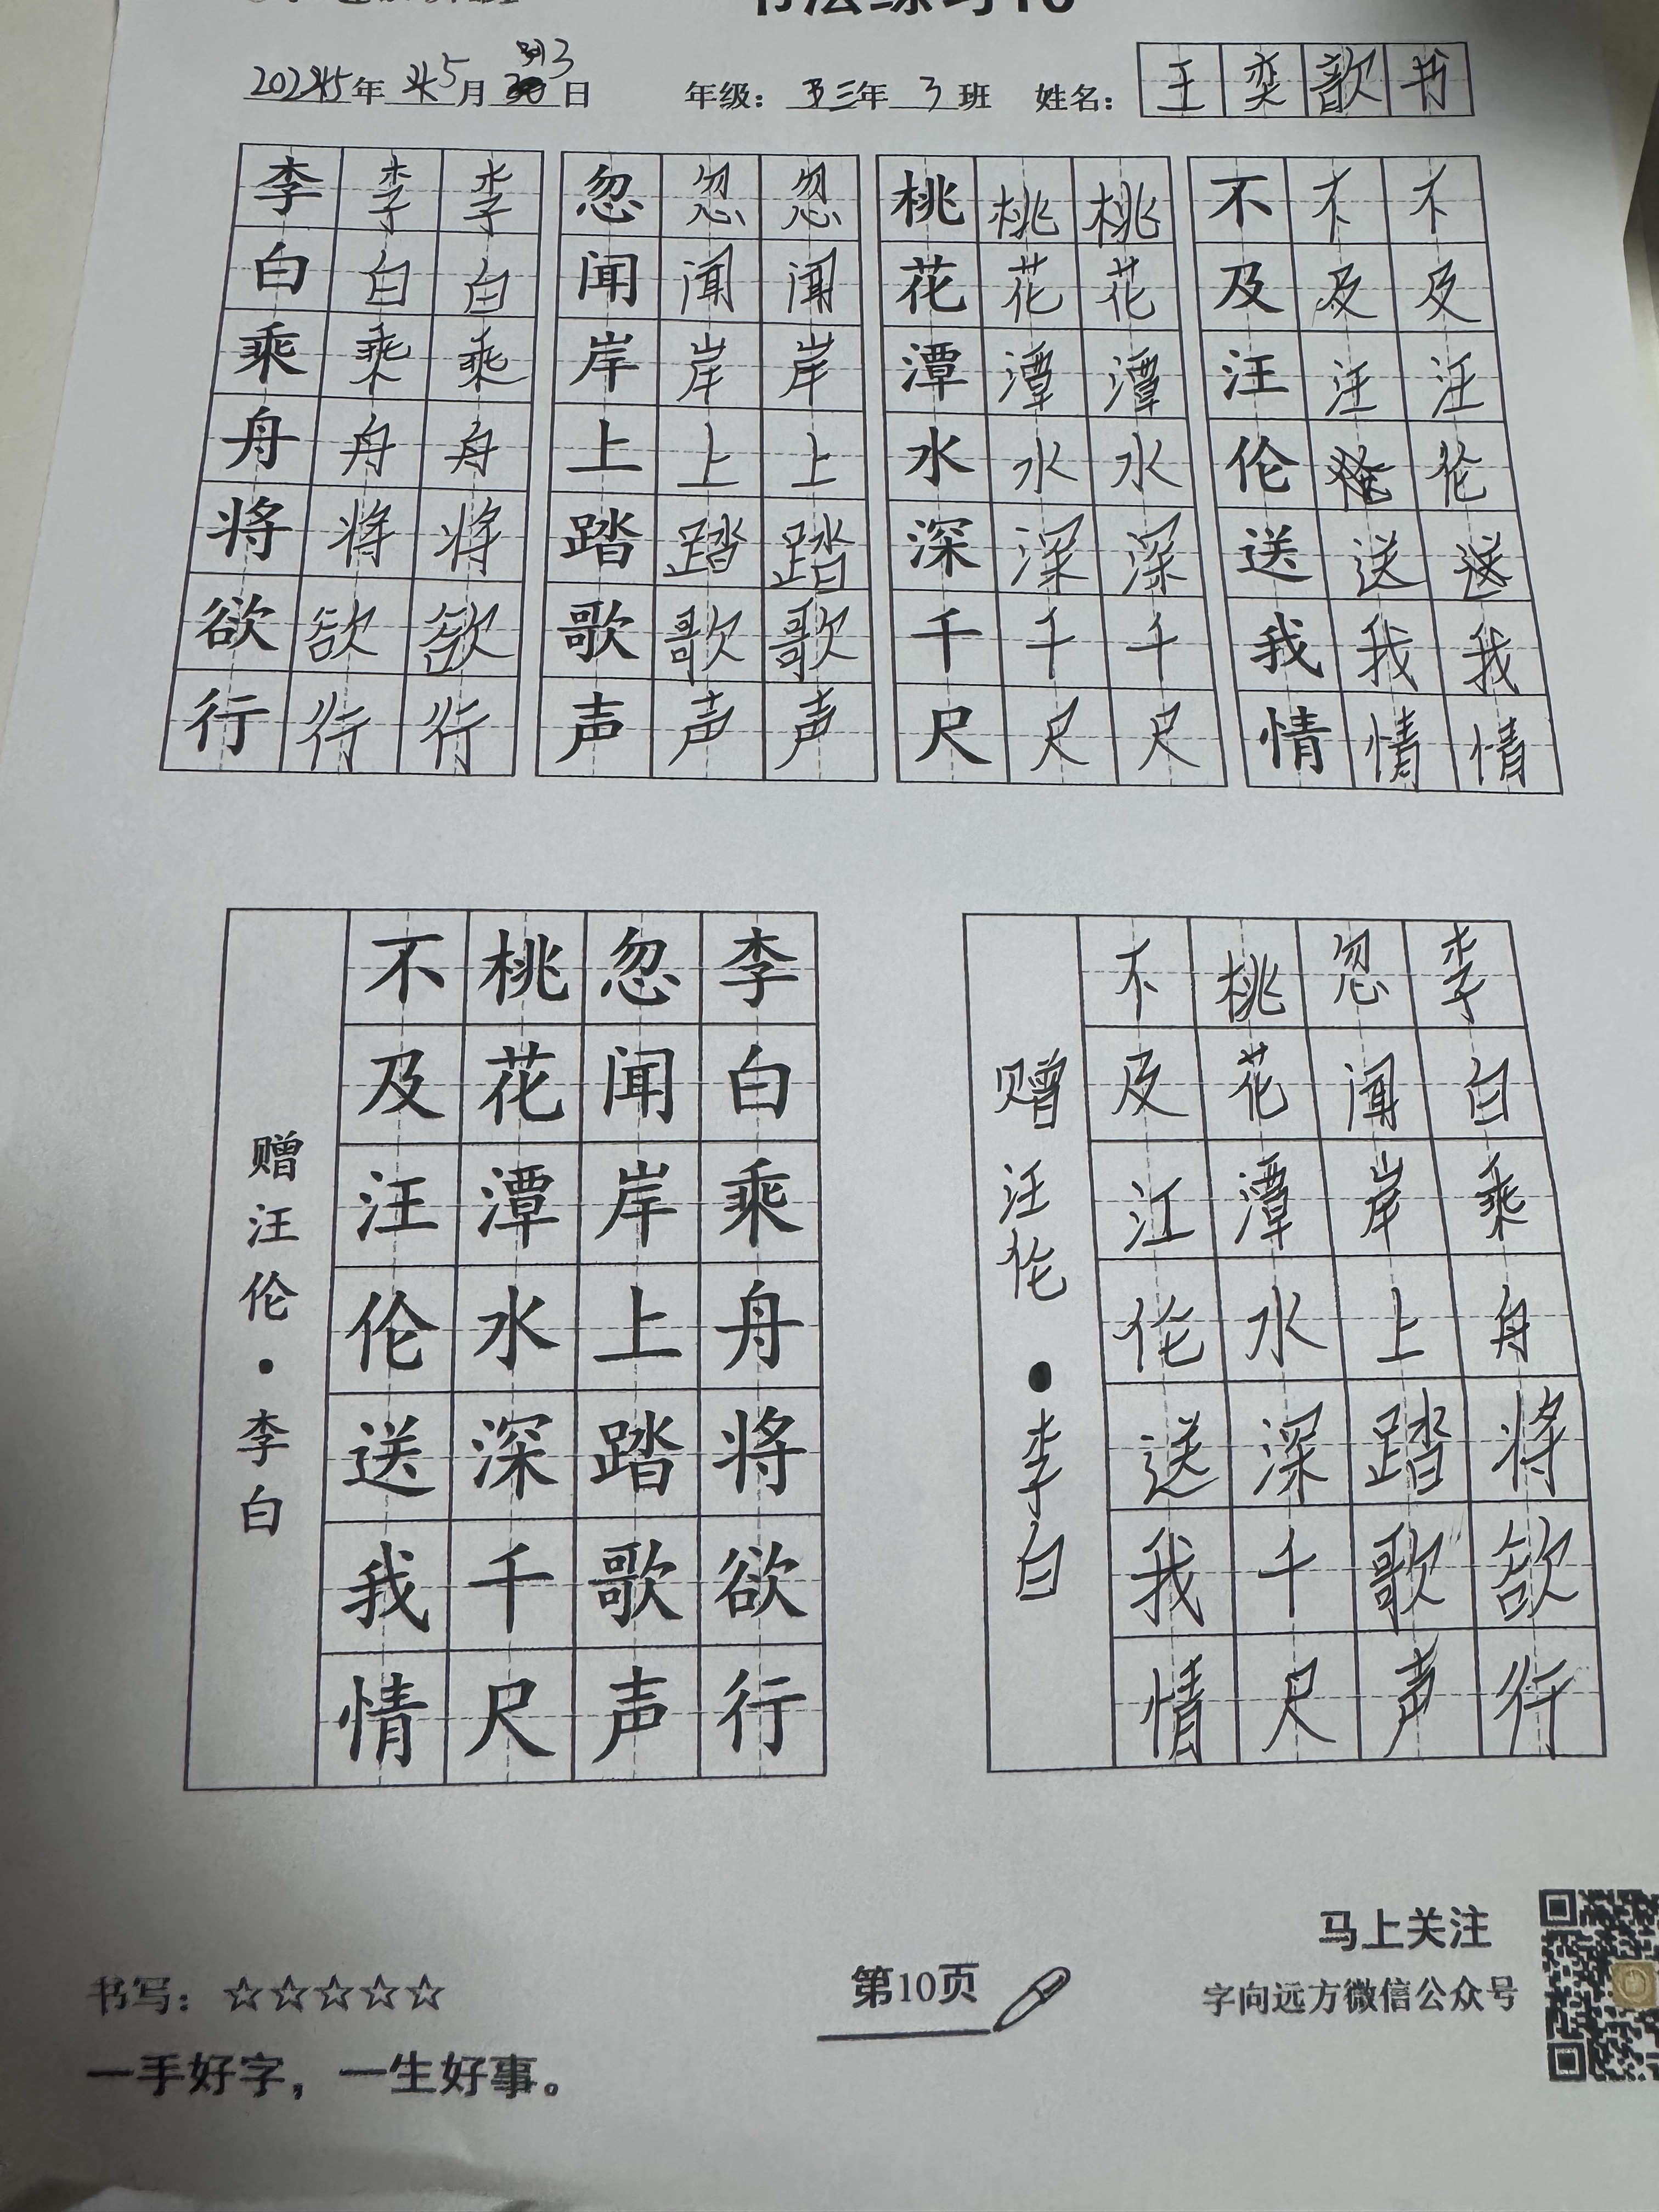 书法练习10
2025年5月3日 年级：三年3班 姓名：王奕歆书
李李李 忽忽忽 桃桃桃 不不不
白白白 闻闻闻 花花花 及及及
乘乘乘 岸岸岸 潭潭潭 汪汪汪
舟舟舟 上上上 水水水 伦伦伦
将将将 踏踏踏 深深深 送送送
欲欲欲 歌歌歌 千千千 我我我
行行行 声声声 尺尺尺 情情情
李白乘舟将欲行
忽闻岸上踏歌声
桃花潭水深千尺
不及汪伦送我情
赠汪伦·李白
李白乘舟将欲行
忽闻岸上踏歌声
桃花潭水深千尺
不及江伦送我情
赠汪伦·李白
书写：☆☆☆☆☆
一手好字，一生好事。
第10页
马上关注
字向远方微信公众号